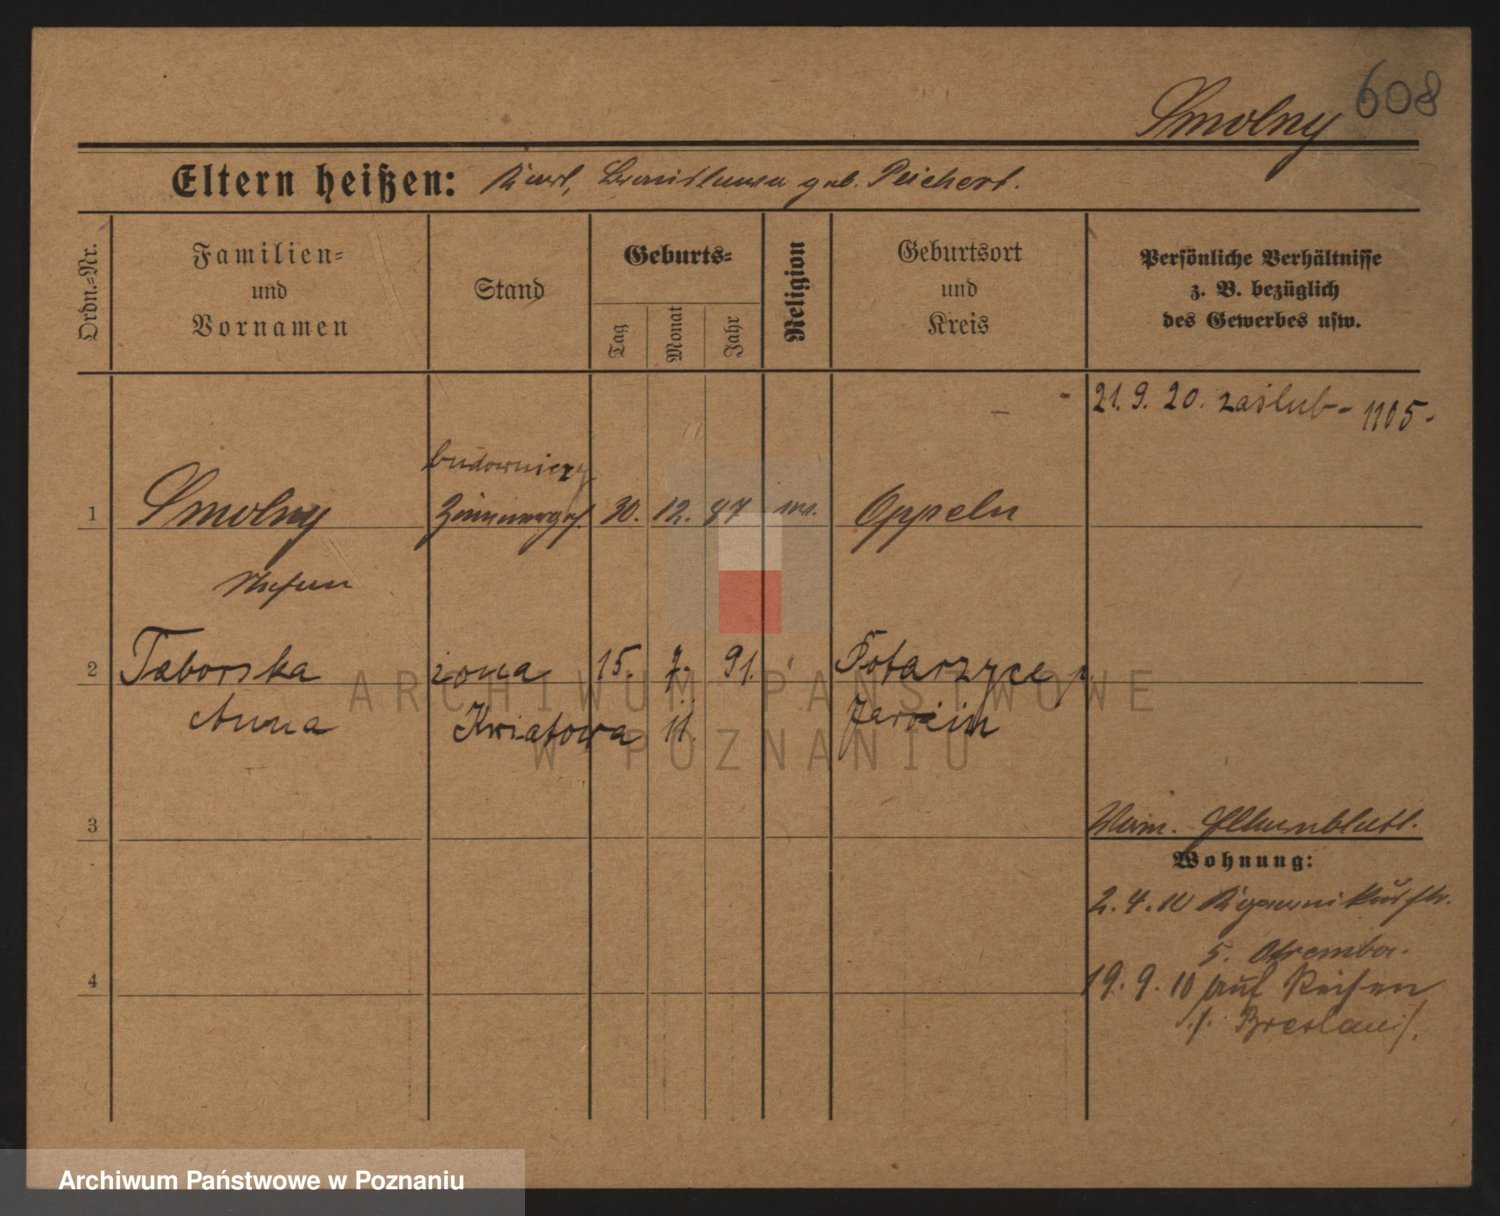 608
Smolny
Eltern heißen: Karl, geb. Peichert.
Ordn.=Nr.
Familien=
und
Vornamen
Stand
Geburts=
Tag
Monat
Jahr
Religion
Geburtsort
und
Kreis
Persönliche Verhältnisse
z. B. bezüglich
des Gewerbes usw.
21. 9. 20. zaślub - 1105 -
budowniczy
1 Smolny Zimmerges. 30. 12. 87 Oppeln
Stefan
2 Taborska żona 15. 7. 91. Potarzyce
Anna Kwiatowa 11. Jarocin
3
Wohnung:
2. 4. 10
5. Otremba.
4
19. 9. 10 auf Reisen
./. Breslau ./.
ARCHIWUM PAŃSTWOWE
W POZNANIU
Archiwum Państwowe w Poznaniu